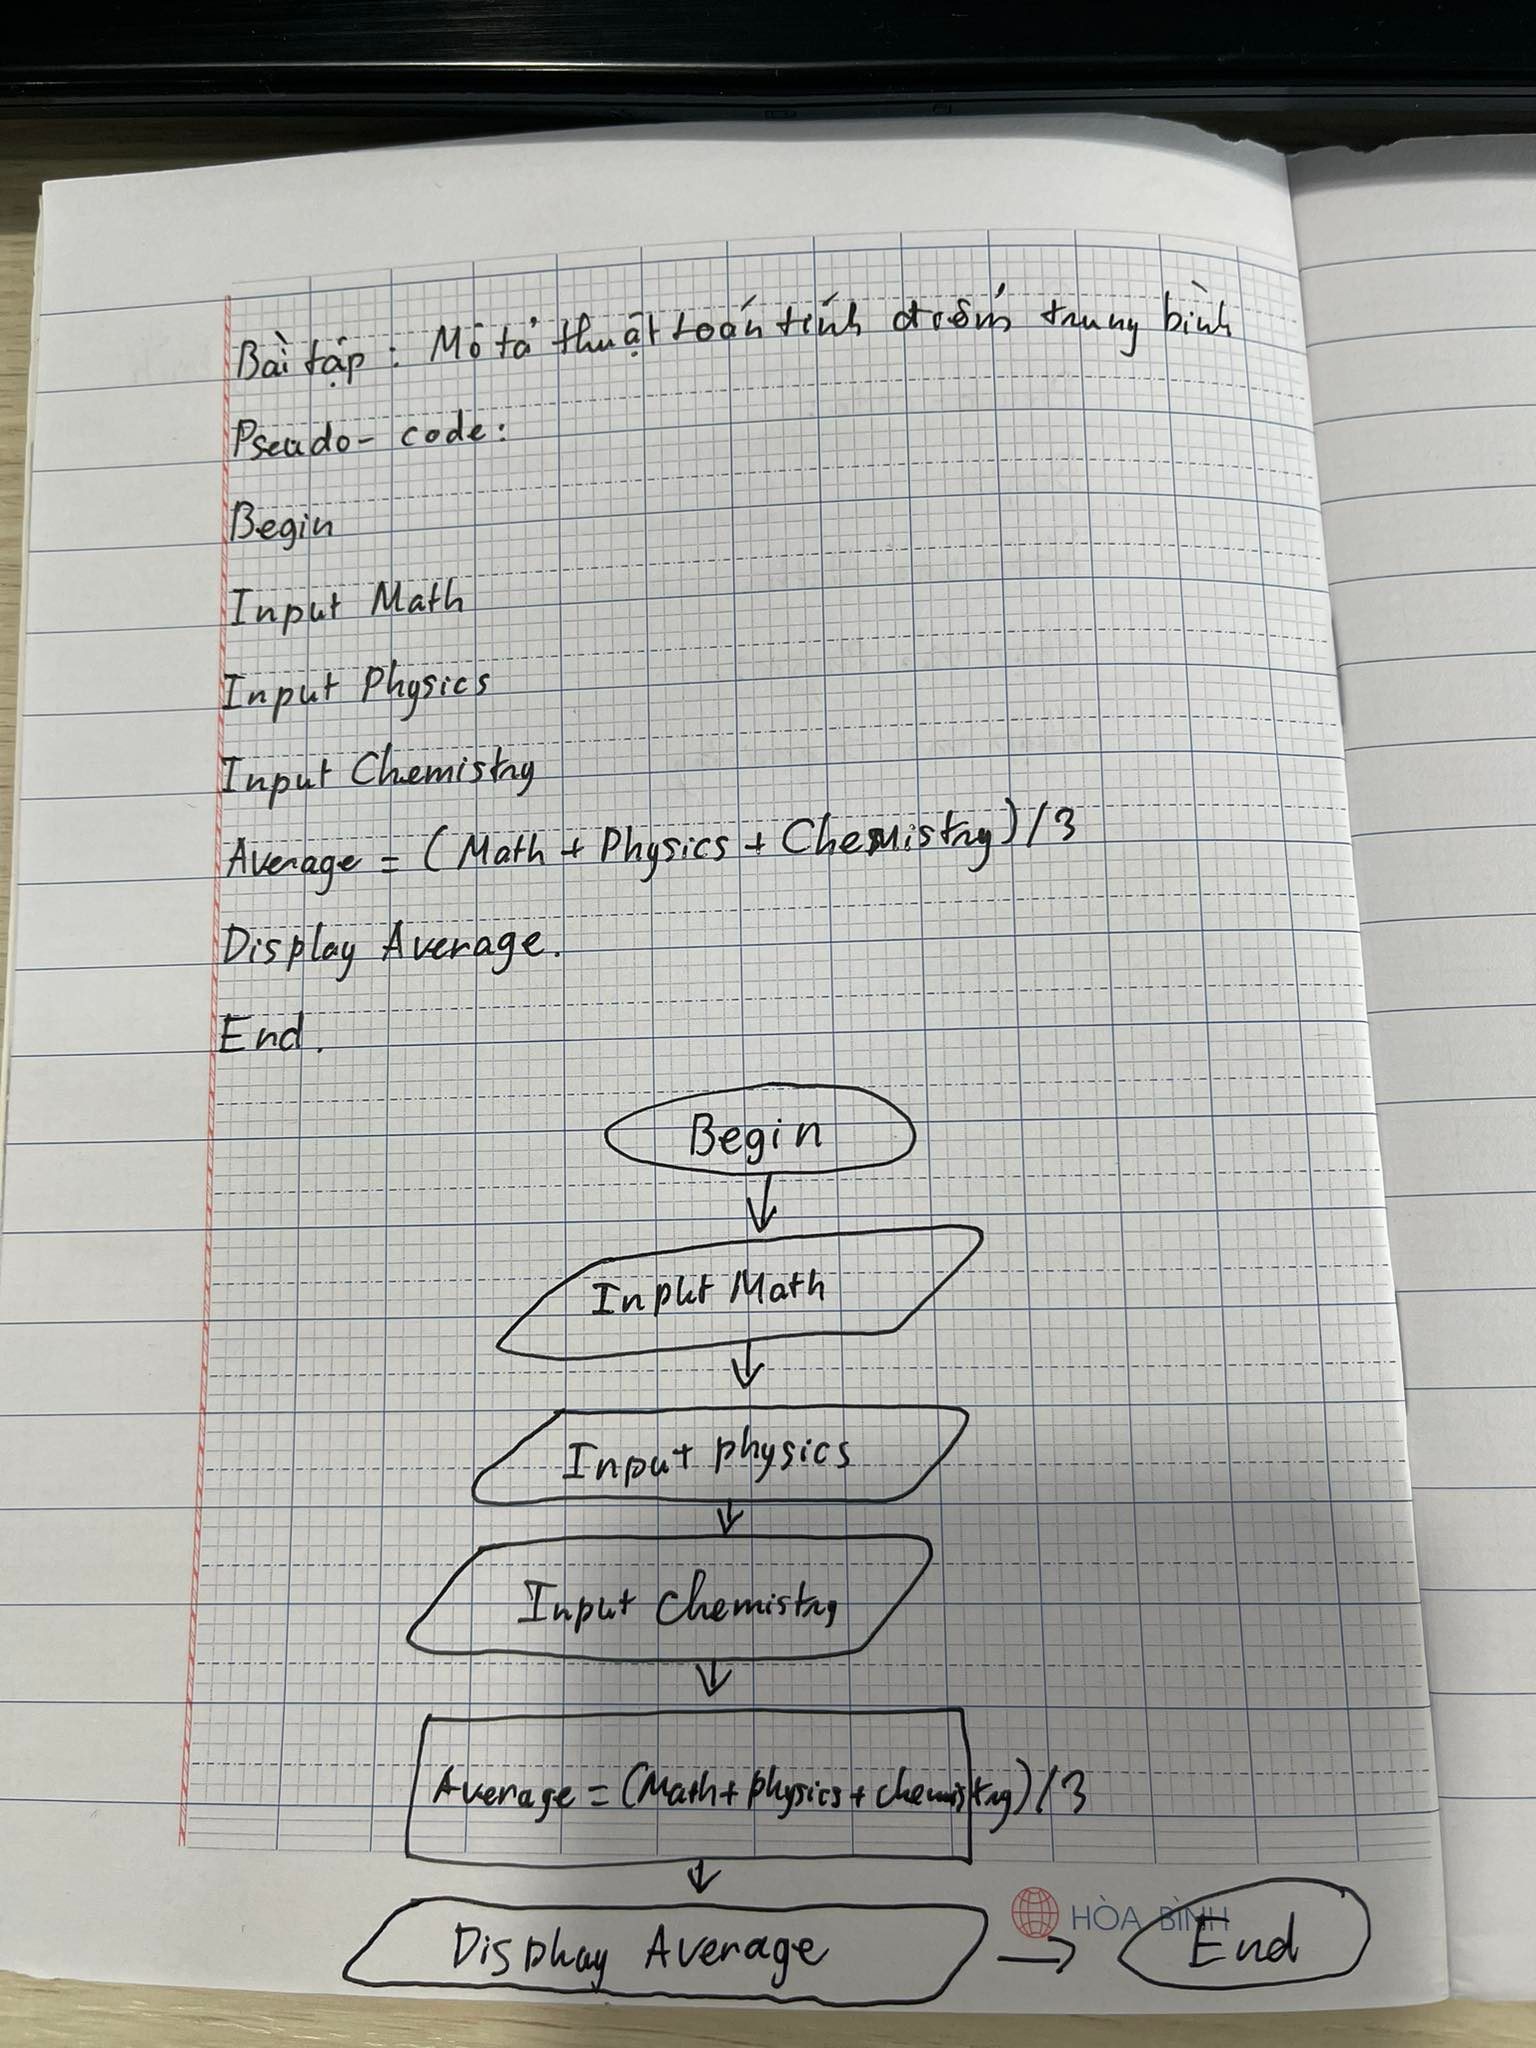 Bài tập : Mô tả thuật toán tính điểm trung bình
Pseudo- code:
Begin
Input Math
Input Physics
Input Chemistry
Average = (Math + Physics + Chemistry)/3
Display Average.
End.
Begin
Input Math
Input physics
Input Chemistry
Average = (Math + physics + chemistry)/3
Display Average
HÒA BÌNH
End